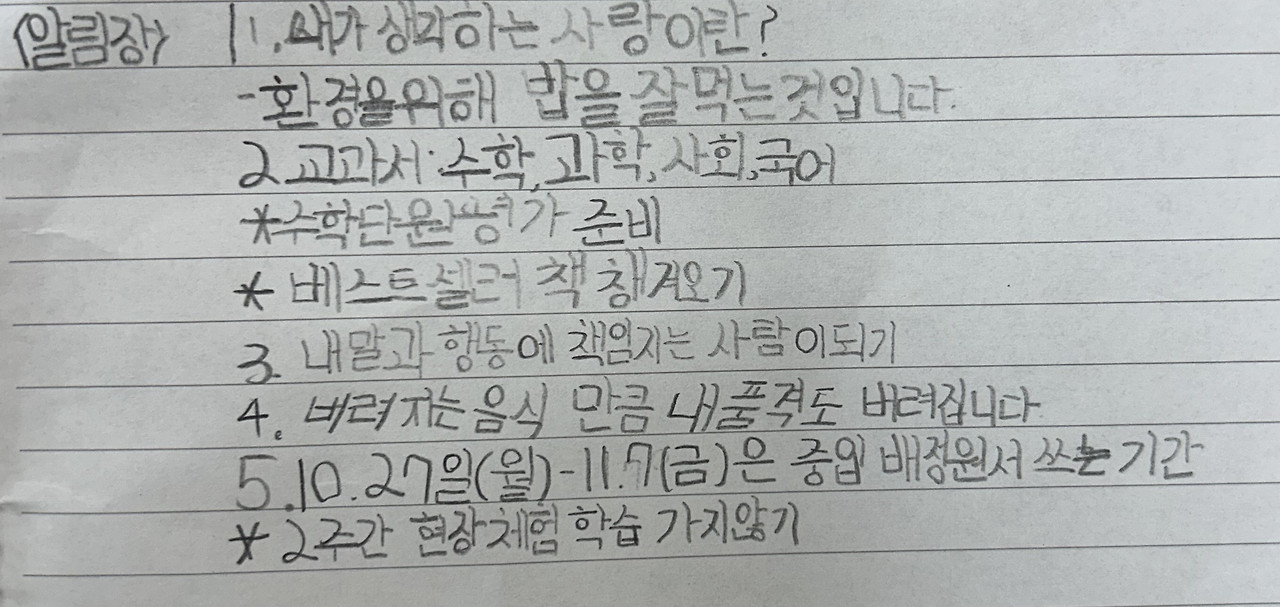 <알림장> 1. 내가 생각하는 사랑이란?
-환경을위해 밥을 잘먹는것입니다.
2 교과서·수학,과학,사회,국어
*수학단원평가 준비
* 베스트셀러 책 챙겨오기
3. 내말과 행동에 책임지는 사람이되기
4. 버려지는음식 만큼 내품격도 버려집니다
5.10.27일(월)-11.7(금)은 중입 배정원서 쓰는 기간
* 2주간 현장체험학습 가지않기